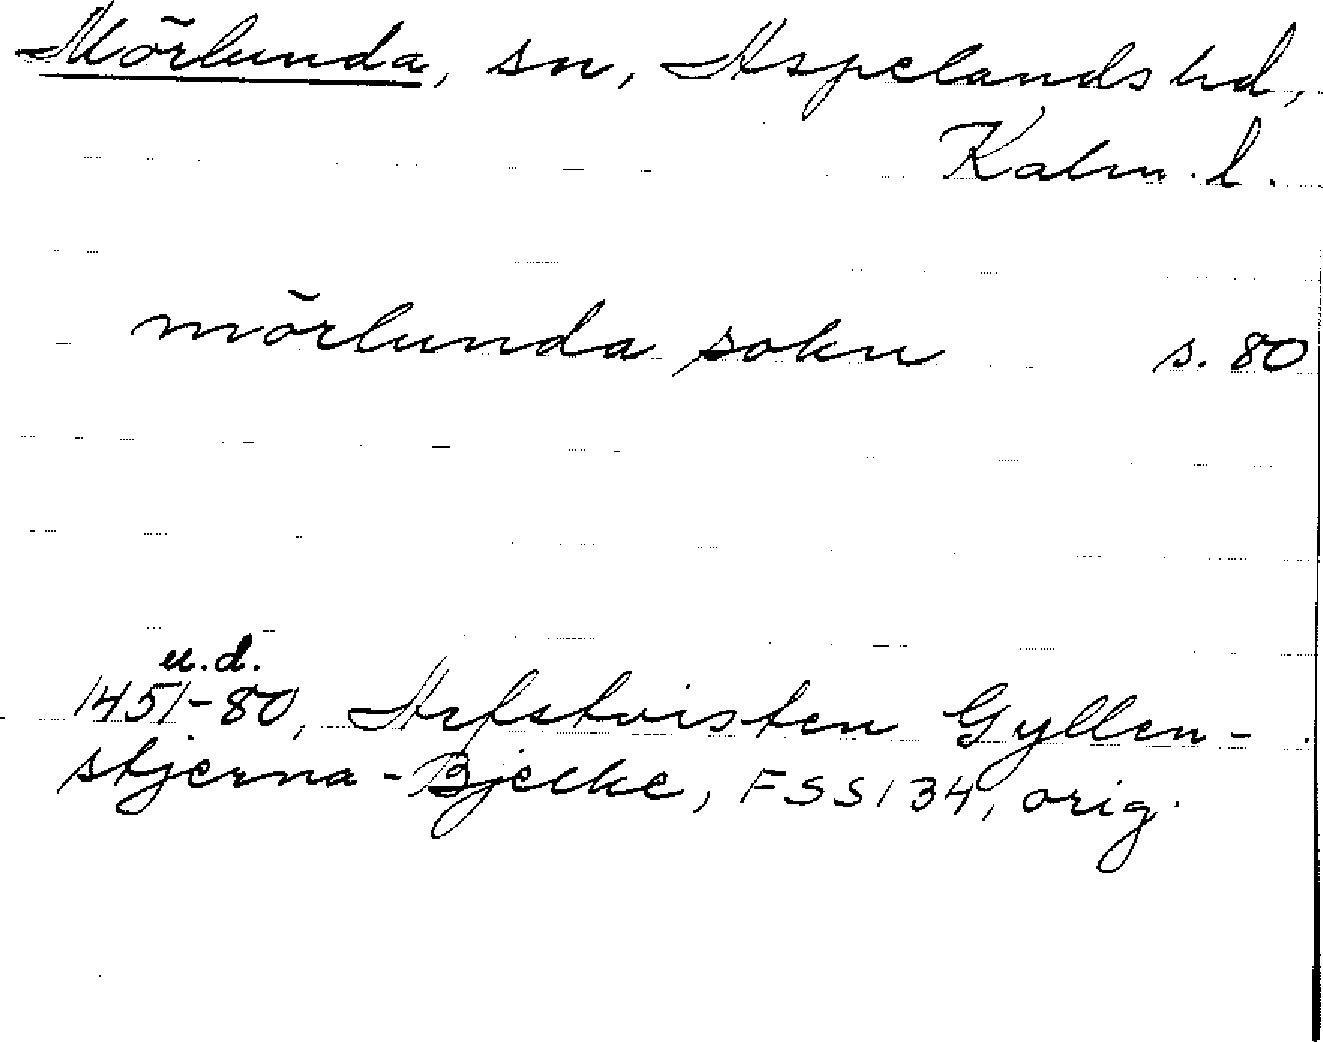 Mörlunda, sn, Aspelands hd,
Kalm. l.
mörlunda sokn s. 80
u.d.
1451-80, Arfstvisten Gyllen-
stjerna-Bjelke, FSS 134, orig.